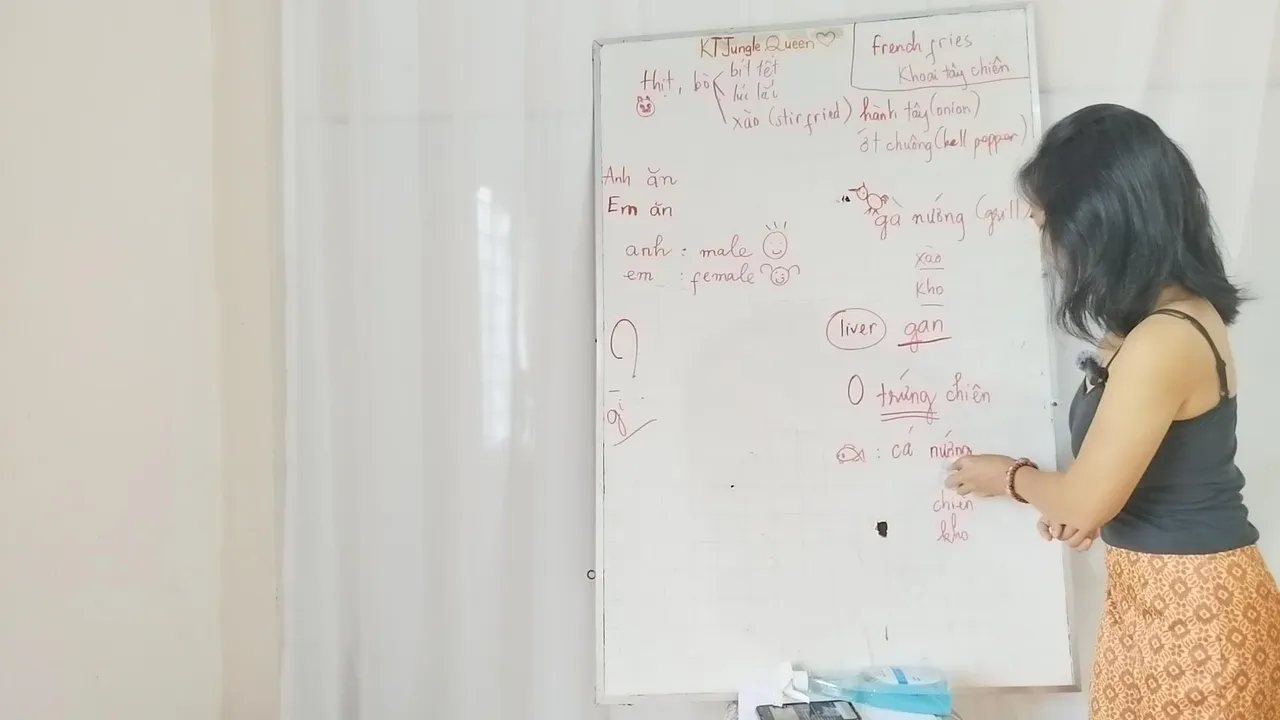 KT Jungle Queen
French fries
Khoai tây chiên
thịt, bò
bít tết
lúc lắc
xào (stir fried)
hành tây (onion)
ớt chuông (bell pepper)
Anh ăn
Em ăn
anh : male
em : female
gà nướng (grill)
xào
kho
liver gan
trứng chiên
: cá nướng
chiên
kho
?
gì